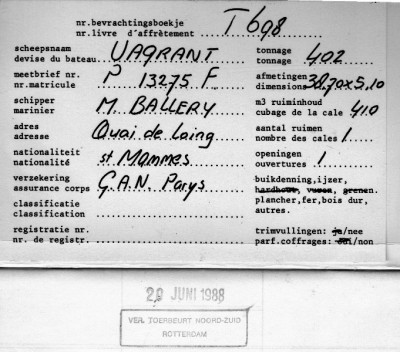 nr.bevrachtingsboekje
nr.livre d'affrètement T 698
scheepsnaam tonnage
devise du bateau VAGRANT tonnage 402
meetbrief nr. afmetingen
nr.matricule P 13275 F dimensions 38,70x5,10
schipper m3 ruiminhoud
marinier M. BALLERY cubage de la cale 410
adres aantal ruimen
adresse Quai de Loing nombre des cales 1
nationaliteit openingen
nationalité st Mammes ouvertures 1
verzekering buikdenning,ijzer,
assurance corps G.A.N. Parys hardhout, vuren, grenen.
classificatie plancher,fer,bois dur,
classification autres.
registratie nr. trimvullingen: ja/nee
nr. de registr. parf.coffrages: oui/non
29 JUNI 1988
VER. TOERBEURT NOORD-ZUID
ROTTERDAM